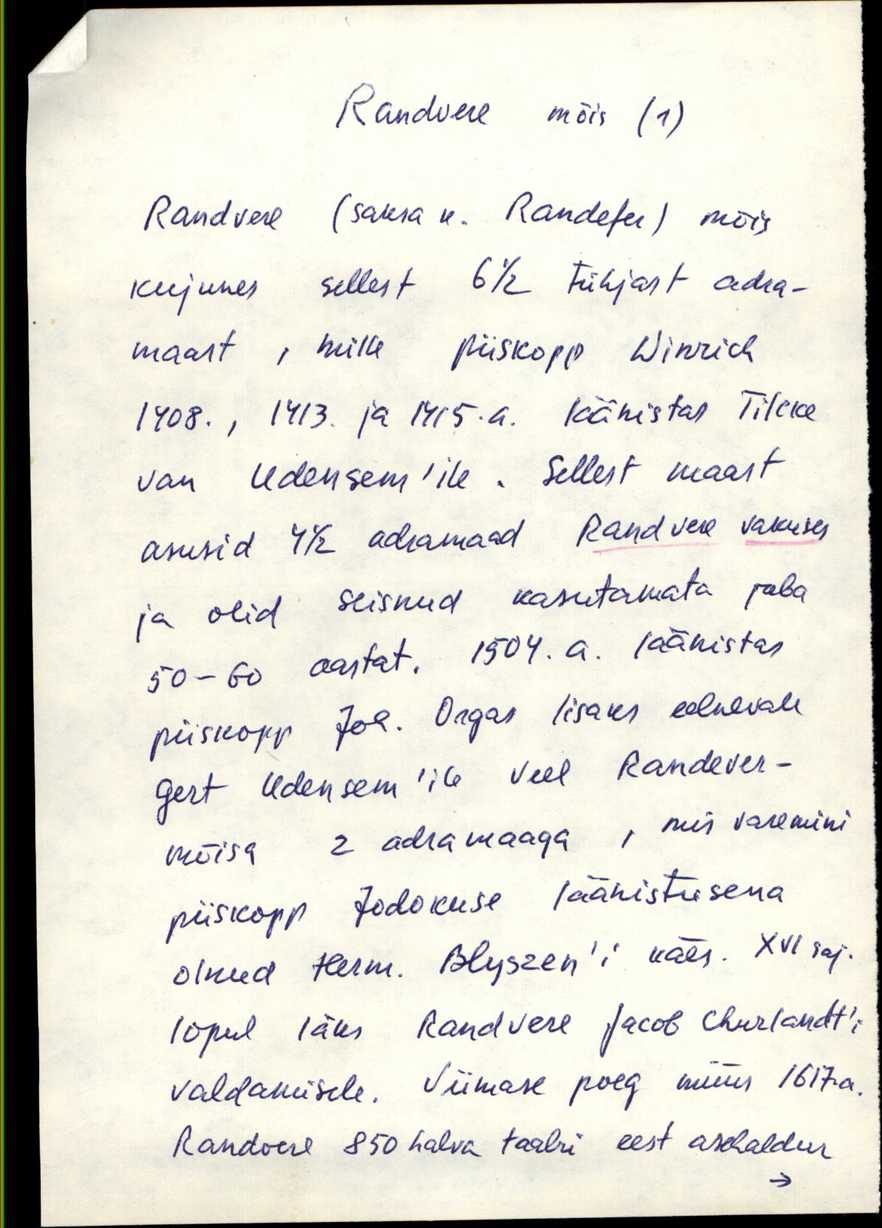 Randvere mõis (1)
Randvere (saksa k. Randefer) mõis
kujunes sellest 6 1/2 tühjast adra-
maast, mille piiskopp Winrich
1408., 1413. ja 1415.a. läänistas Tilcke
van Udensem'ile. Sellest maast
asusid 4 1/2 adramaad Randvere vakuses
ja olid seisnud kasutamata juba
50-60 aastat. 1504. a. läänistas
piiskopp Joh. Orgas lisaks eelnevale
Gert Udensem'ile veel Randever-
mõisa 2 adramaaga, mis varemini
piiskopp Jodokuse läänistusena
olnud Herm. Blyszen'i käes. XVI saj.
lõpul läks Randvere Jacob Churlandt'i
valdamisele. Viimase poeg müüs 1617.a.
Randvere 850 halva taalri eest asehaldur
→